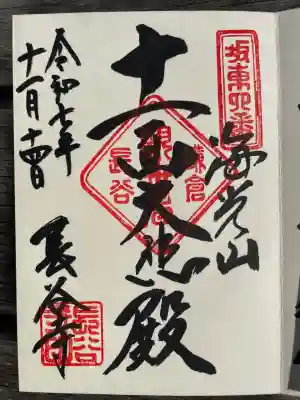 坂東四番
海光山
十一面大悲殿
鎌倉
長谷
長谷寺
令和七年
十一月十四日